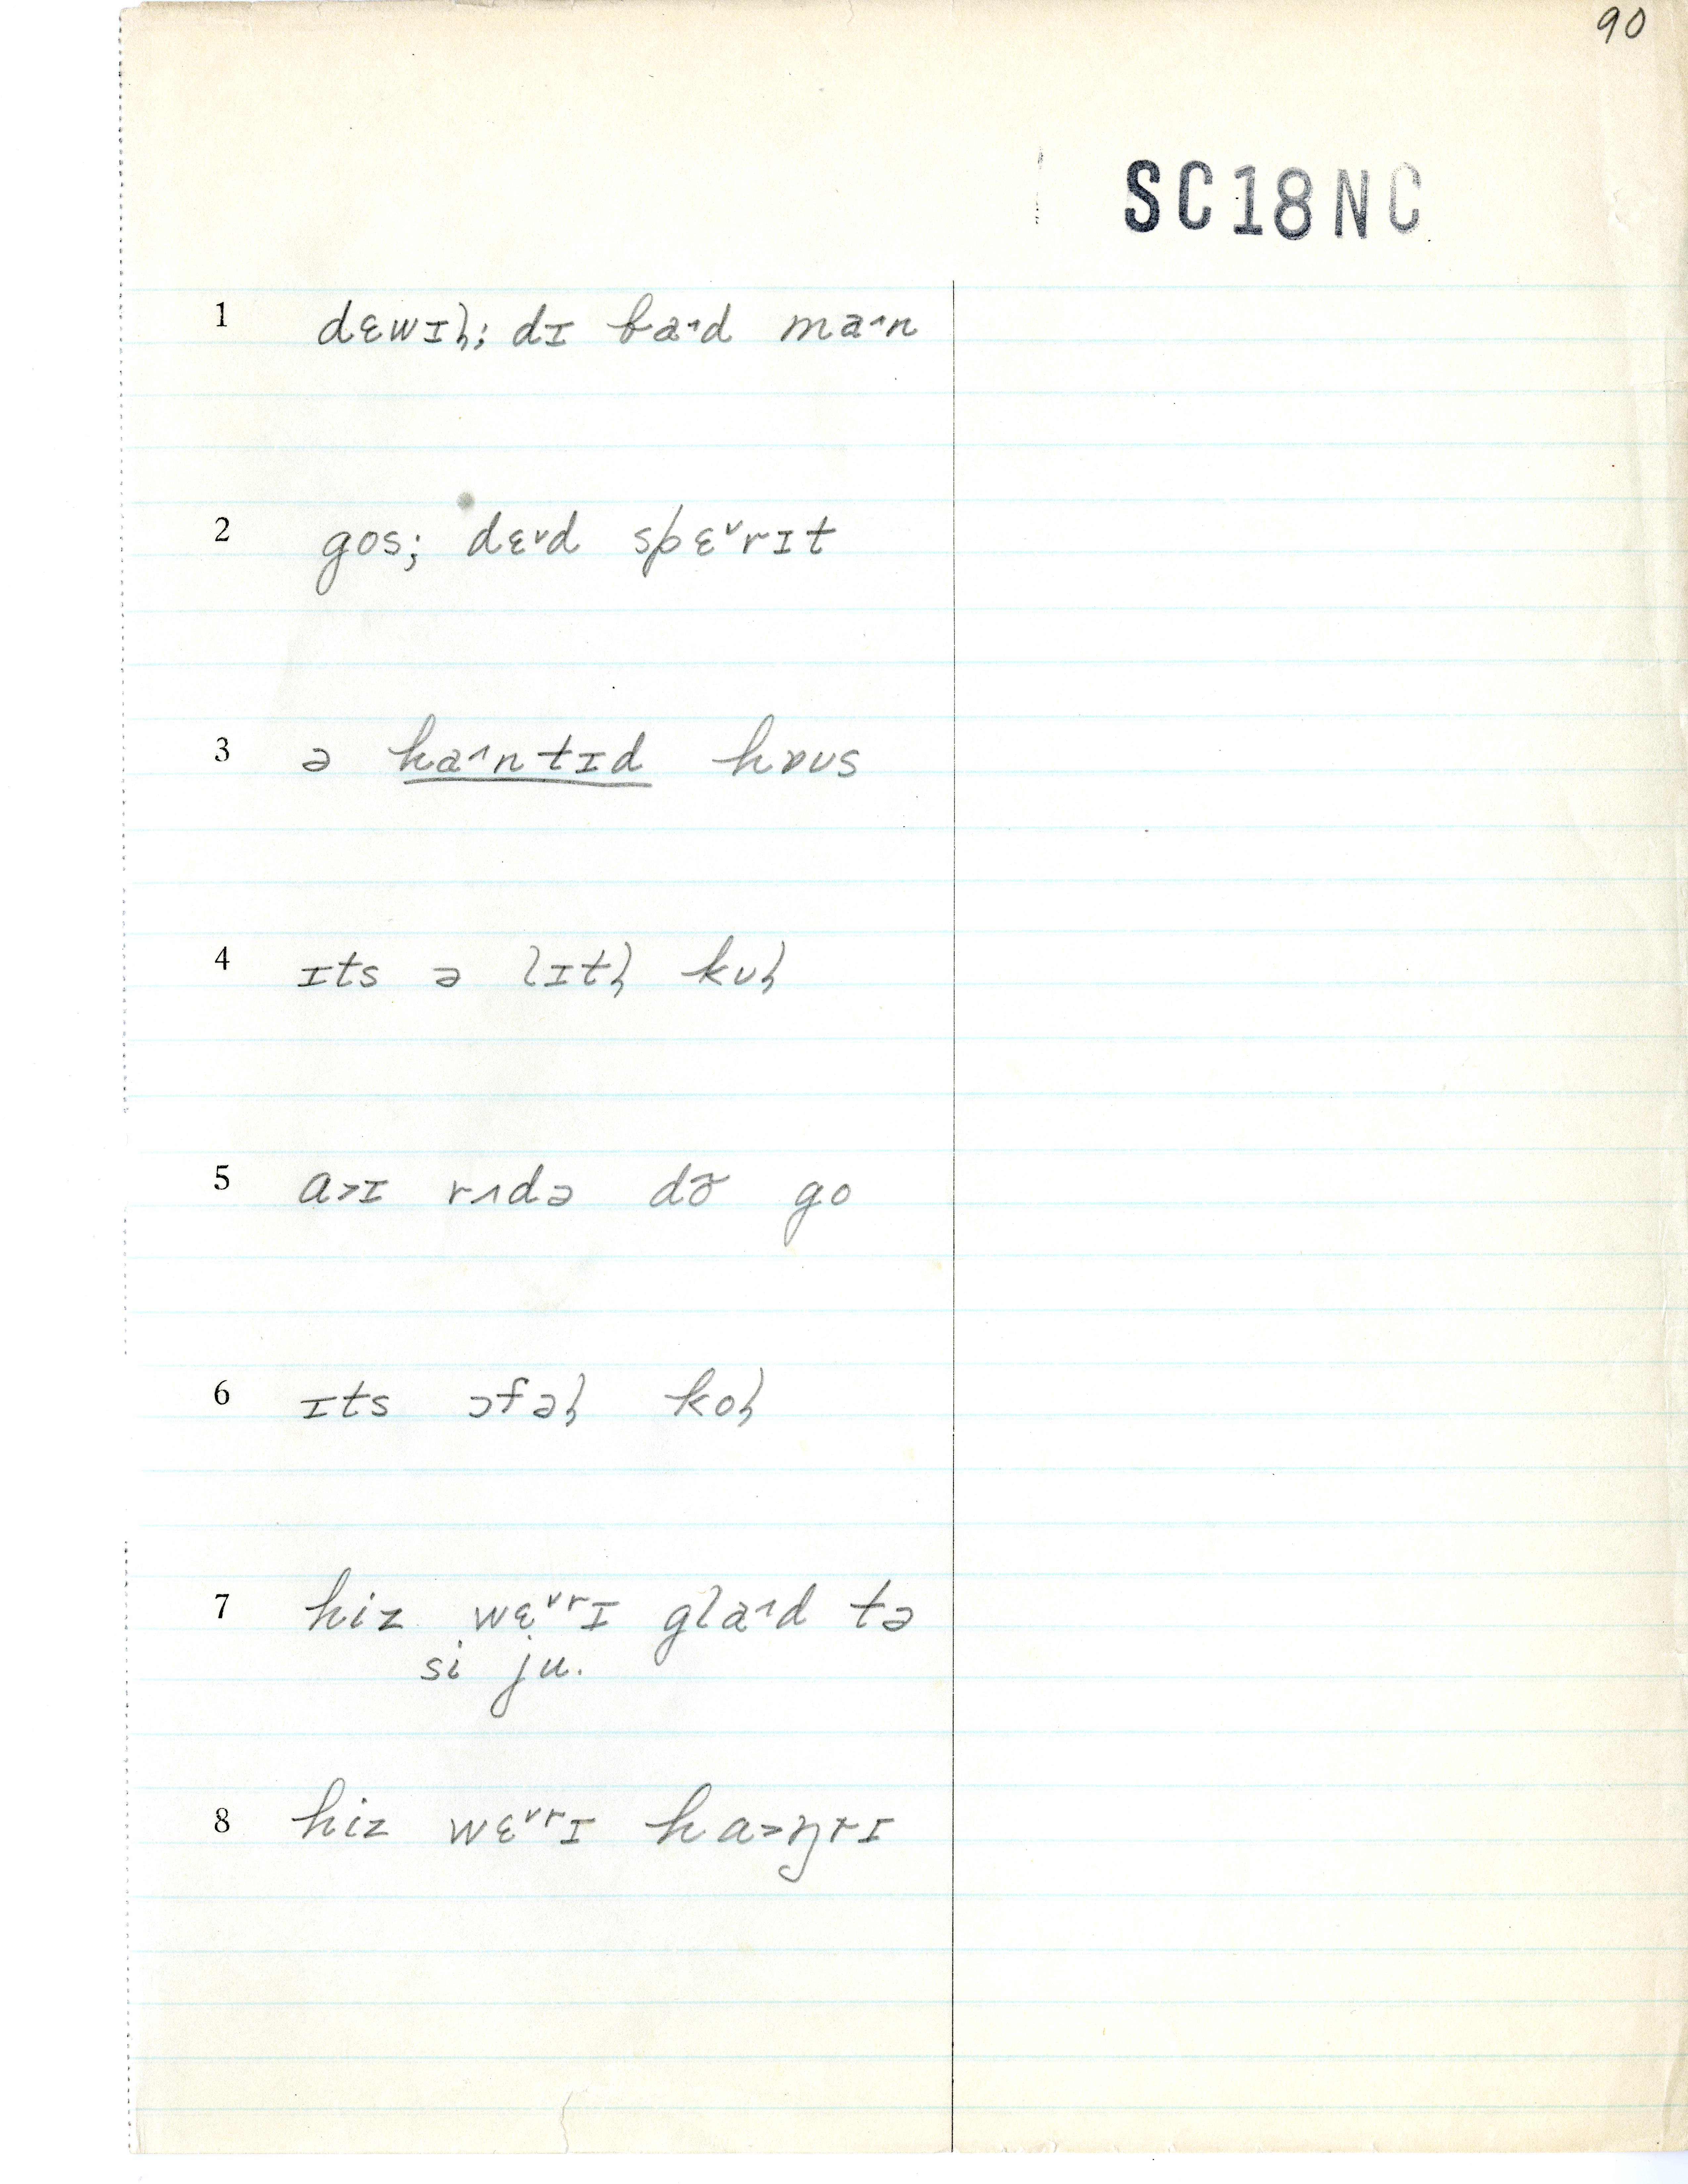 90
SC18NC
1 dɛwɪl̩; dɪ ba˄d ma˄n
2 gos; dɛ˅d spɛ˅rɪt
3 ə ha˄ntɪd hɒʊs
4 ɪts ə lɪtl̩ kʊl̩
5 a˃ɪ rʌdə dõ go
6 ɪts ɔfəl̩ kol̩
7 hiz wɛ˅rɪ gla˄d tə
si ju.
8 hiz wɛ˅rɪ ha˃ŋrɪ